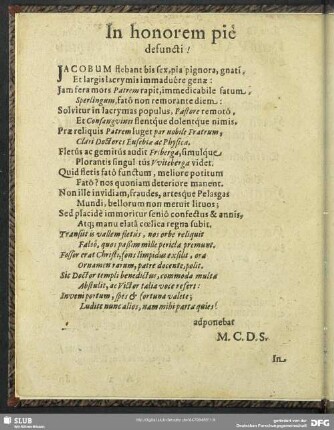 In honorem piè
defuncti!
JACOBUM flebant bis sex, pia pignora, gnati,
Et largis lacrymis immaduêre genæ:
Jam fera mors Patrem rapit, immedicabile fatum,
Sperlingum, fatô non remorante diem:
Solvitur in lacrymas populus, Pastore remotô,
Et Consangvinei flentque dolentque nimis.
Præ reliquis Patrem luget par nobile Fratrum,
Clari Doctores Eusebiæ ac Physicæ.
Fletûs ac gemitûs audit Friberga, simulque
Plorantis singultus VViteberga videt.
Quid fletis fatô functum, meliore potitum
Fatô? nos quoniam deteriore manent.
Non ille invidiam, fraudes, artesque Pelasgas
Mundi, bellorum non metuit lituos;
Sed placidè immoritur seniô confectus & annis,
Atq; manu elatâ cœlica regna subit.
Transiit is vallem fletûs, nos orbe reliquit
Falsô, quos passim mille pericla premunt.
Fossor erat Christi, fons limpidus exstitit, ora
Ornamen rarum, patre docente, polit.
Sic Doctor templi benedictus, commoda multa
Abstulit, ac Victor talia voce refert:
Inveni portum, spes & fortuna valete;
Ludite nunc alios, nam mihi parta quies!
adponebat
M. C. D. S.
In
SLUB
DFG